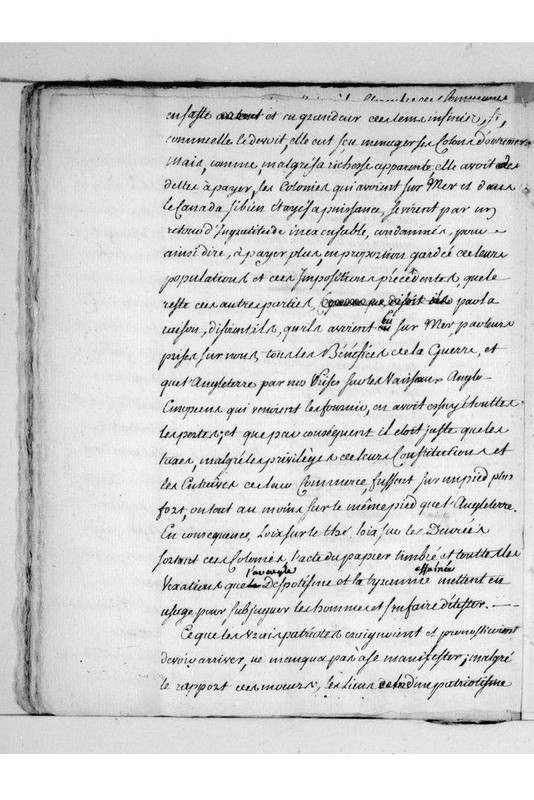 en faste et en grandeur des tems infinis, si,
comme elle le devoit, elle eut sçu menager ses Colons d'outremer.
Mais, comme, malgré sa richesse apparente elle avoit des
dettes à payer, les Colonies qui avoient sur Mer et dans
le Canada si bien étayé sa puissance, se virent par un
retour d'Ingratitude inexcusable, condamnés, pour
ainsi dire, à payer plus, en proportion gardée de leurs
populations et des Impositions précédentes, que le
reste des autres parties, par la
raison, disoient ils, qu'ils avoient Eu sur Mer par leurs
prises sur nous, tous les Bénéfices de la Guerre, et
que l'Angleterre par nos Prises sur les Vaisseaux Anglo-
Européens qui venoient les fournir, en avoit essuyé touttes
les pertes; et que par conséquent il etoit juste que les
taxes, malgré les privilèges de leurs Constitutions et
les Entraves de leur Commerce, fussent sur un pied plus
fort, ou tout au moins sur le même pied que l'Angleterre.
En consequence, Loix sur le thé, loix sur les Denrées
sortant des Colonies, l'acte du papier timbré et touttes les
Vexations que l'aveugle Despotisme et la tyrannie effrénée mettent en
usage pour subjuguer les hommes et s'en faire détester. —
Ce que les vrais patriotes craignoient et pronostiquoient
devoir arriver, ne manqua pas à se manifester; malgré
le rapport des moeurs, les liens d'un patriotisme